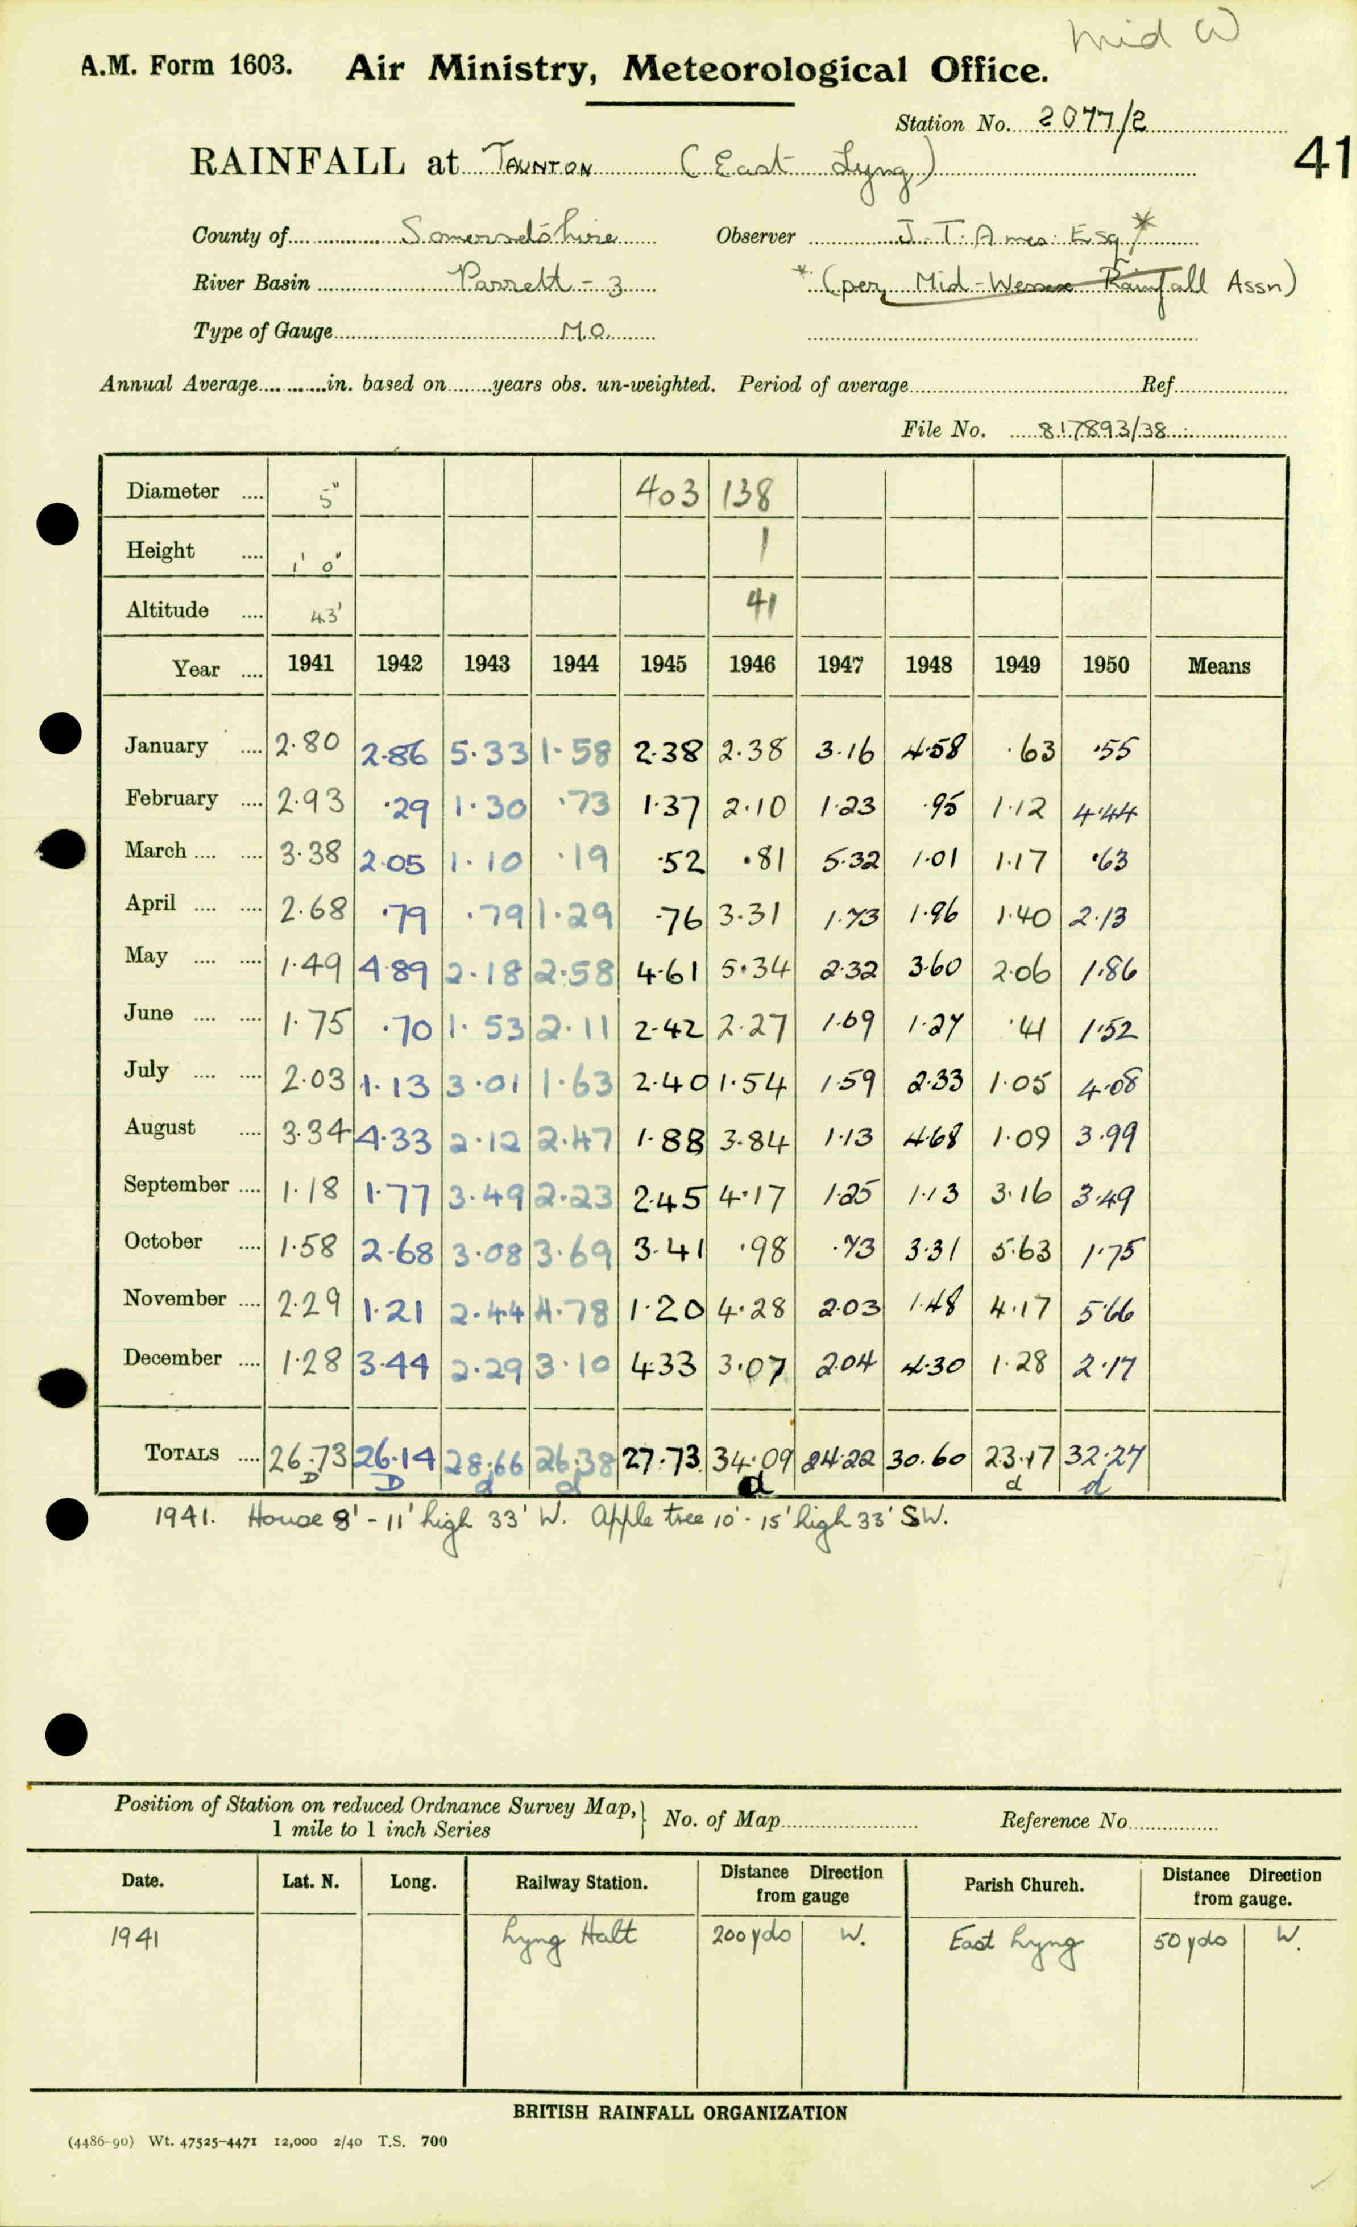 Mid W
A.M. Form 1603. Air Ministry, Meteorological Office.
Station No. 2077/2
41
RAINFALL at TAUNTON (East Lyng)
County of Somersetshire Observer J. T. Ames Esq *
River Basin Parrett - 3 * (per Mid-Wessex Rainfall Assn)
Type of Gauge M.O.
Annual Average............in. based on........years obs. un-weighted. Period of average Ref.
File No. 817893/38
Diameter .... 5" 403 138
Height .... 1' 0" 1
Altitude .... 43' 41
Year .... 1941 1942 1943 1944 1945 1946 1947 1948 1949 1950 Means
January .... 2.80 2.86 5.33 1.58 2.38 2.38 3.16 4.58 .63 .55
February .... 2.93 .29 1.30 .73 1.37 2.10 1.23 .95 1.12 4.44
March .... .... 3.38 2.05 1.10 .19 .52 .81 5.32 1.01 1.17 .63
April .... .... 2.68 .79 .79 1.29 .76 3.31 1.73 1.96 1.40 2.13
May .... .... 1.49 4.89 2.18 2.58 4.61 5.34 2.32 3.60 2.06 1.86
June .... .... 1.75 .70 1.53 2.11 2.42 2.27 1.69 1.27 .41 1.52
July .... .... 2.03 1.13 3.01 1.63 2.40 1.54 1.59 2.33 1.05 4.08
August .... 3.34 4.33 2.12 2.47 1.88 3.84 1.13 4.68 1.09 3.99
September .... 1.18 1.77 3.49 2.23 2.45 4.17 1.25 1.13 3.16 3.49
October .... 1.58 2.68 3.08 3.69 3.41 .98 .73 3.31 5.63 1.75
November .... 2.29 1.21 2.44 4.78 1.20 4.28 2.03 1.48 4.17 5.66
December .... 1.28 3.44 2.29 3.10 4.33 3.07 2.04 4.30 1.28 2.17
TOTALS .... 26.73 26.14 28.66 26.38 27.73 34.09 24.22 30.60 23.17 32.27
D D d d d d d
1941. House 8' - 11' high 33' W. Apple tree 10' - 15' high 33' SW.
Position of Station on reduced Ordnance Survey Map,} No. of Map Reference No.
1 mile to 1 inch Series
Date. Lat. N. Long. Railway Station. Distance Direction from gauge Parish Church. Distance Direction from gauge.
1941 Lyng Halt 200 yds W. East Lyng 50 yds W.
BRITISH RAINFALL ORGANIZATION
(4486-90) Wt. 47525-4471 12,000 2/40 T.S. 700